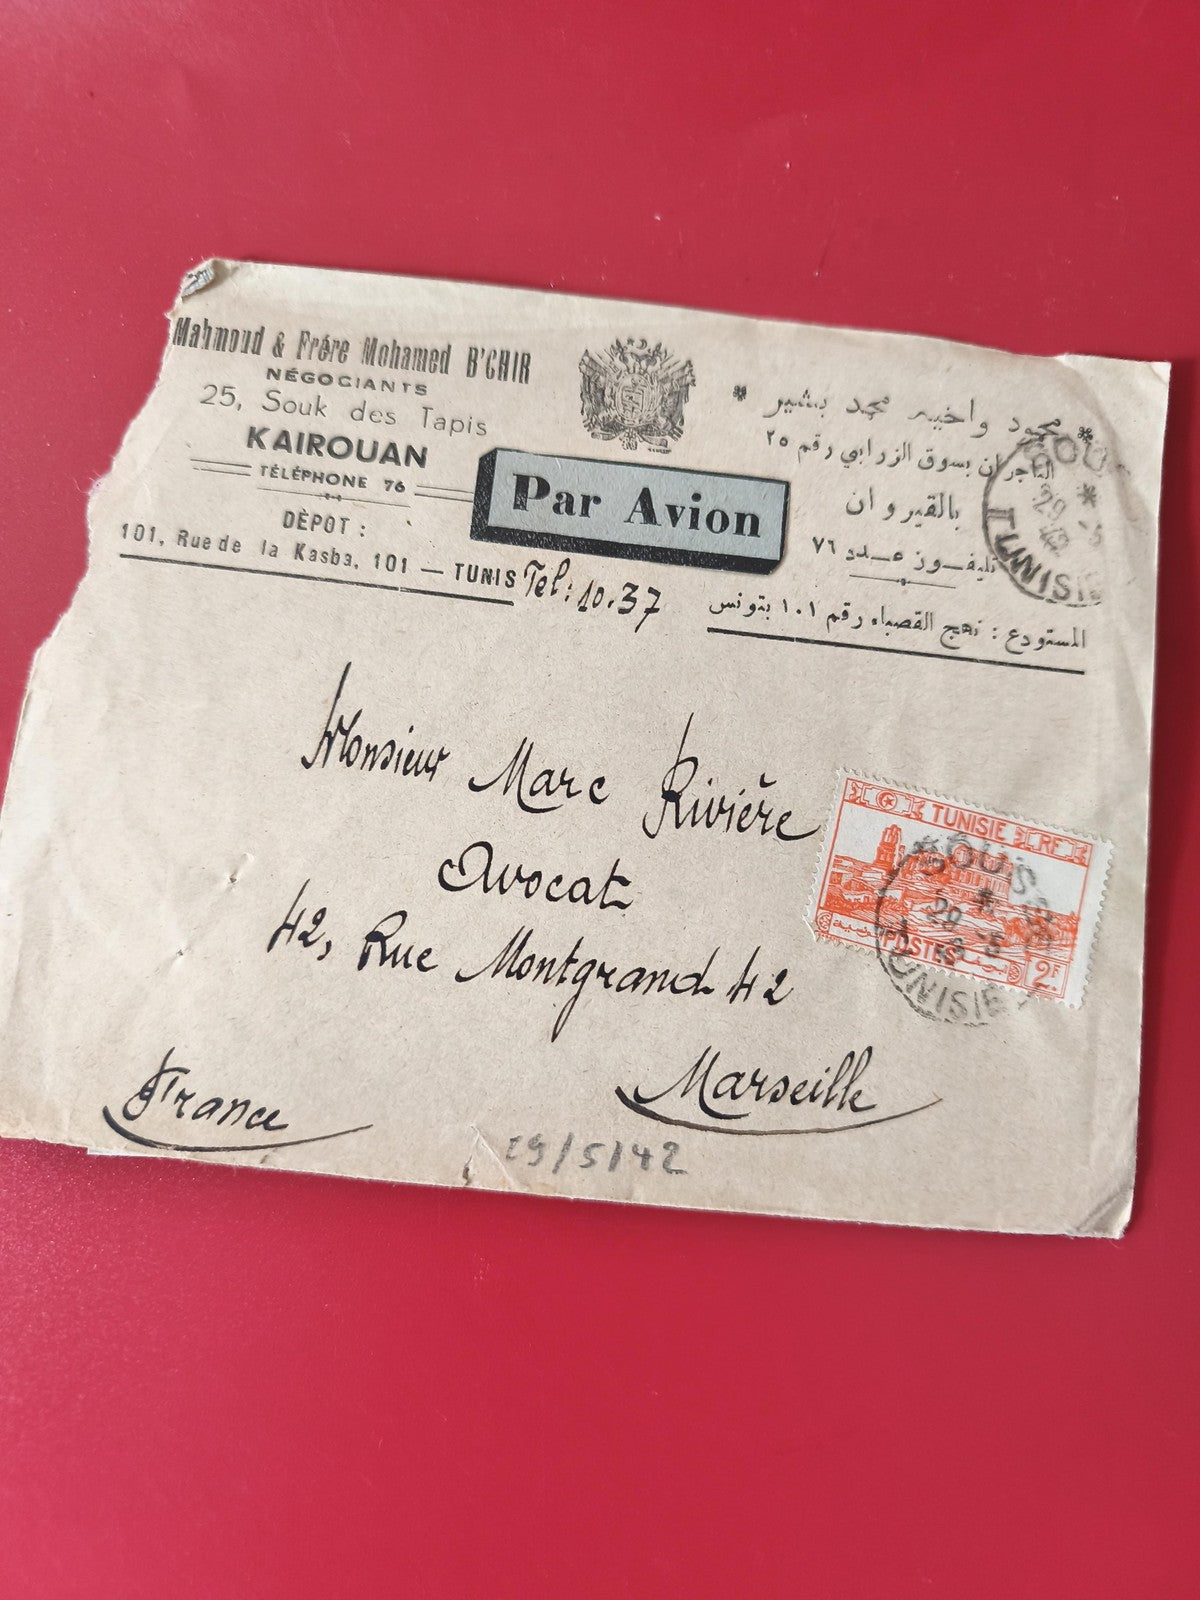 Mahmoud & Frére Mohamed B'CHIR
NÉGOCIANTS
25, Souk des Tapis
KAIROUAN
TÉLÉPHONE 76
DÈPOT :
101, Rue de la Kasba, 101 — TUNIS
Tel: 10.37
Par Avion
* محمود واخيه محمد بشير *
التاجران بسوق الزرابي رقم ٢٥
بالقيروان
تليفون عدد ٧٦
المستودع : نهج القصباه رقم ١٠١ بتونس
29 -5
TUNISIE
Monsieur Marc Rivière
Avocat
42, Rue Montgrand 42
Marseille
France
29/5/42
TUNISIE RF
POSTES
2F.
SOUSSE
29 -5
TUNISIE